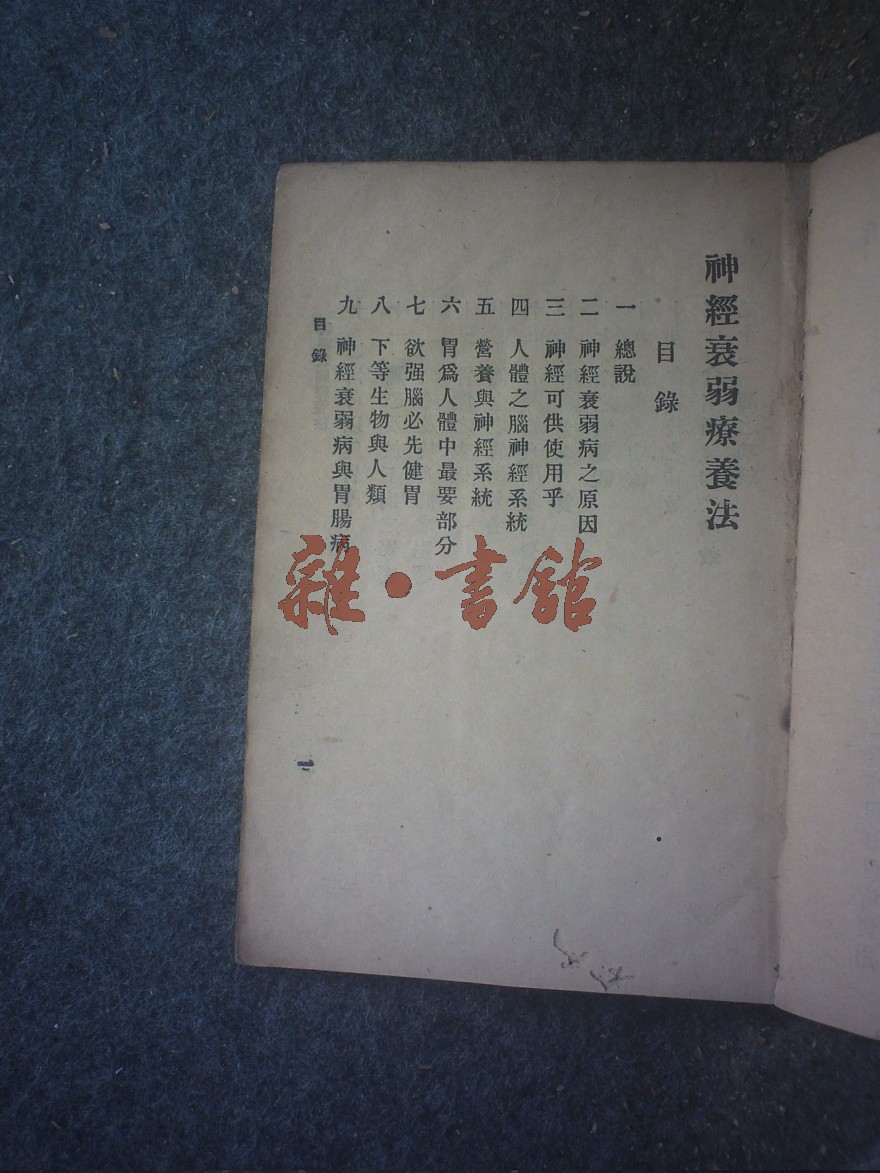 神經衰弱療養法
目錄
一 總說
二 神經衰弱病之原因
三 神經可供使用乎
四 人體之腦神經系統
五 營養與神經系統
六 胃爲人體中最要部分
七 欲强腦必先健胃
八 下等生物與人類
九 神經衰弱病與胃腸病
目錄
一
雜·書館